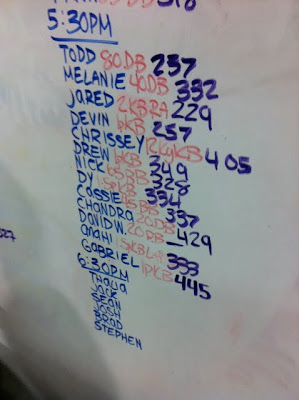 318
5:30PM
TODD 80DB 237
MELANIE 40DB 332
JARED 2KBRA 229
DEVIN 1PKB 257
CHRISSEY 12KgKB 405
DREW 1PKB 349
NICK 65DB 328
DY 1.5PKB 334
CASSIE 15DB 337
CHANDRA 20DB
DAVID W. 20DB 429
ANAHI 333
GABRIEL 1PKB 445
6:30PM
THALIA
JACK
SEAN
JOSH
BROD
STEPHEN